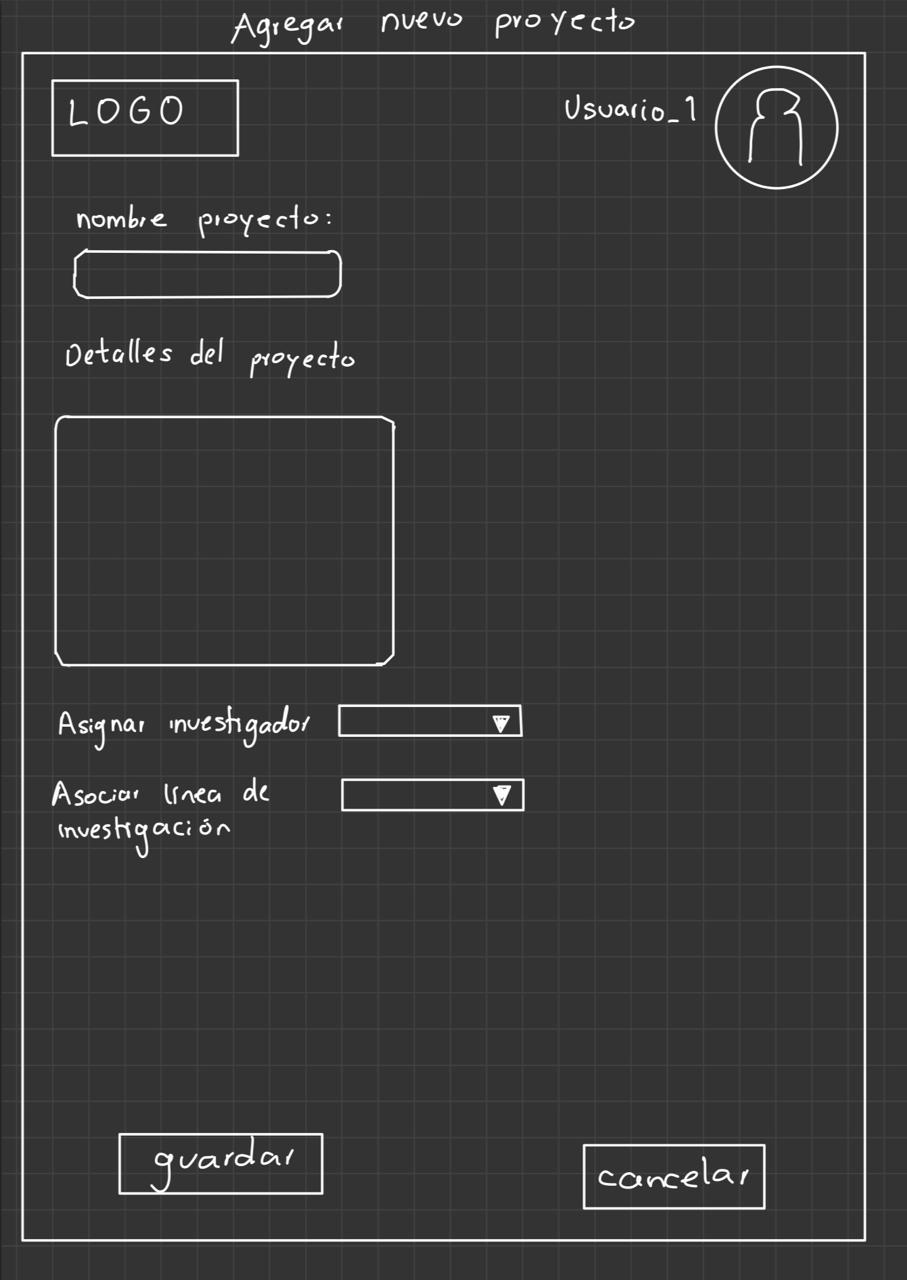 Agregar nuevo proyecto
LOGO
Usuario_1
nombre proyecto:
Detalles del proyecto
Asignar investigador
Asociar línea de
investigación
guardar
cancelar